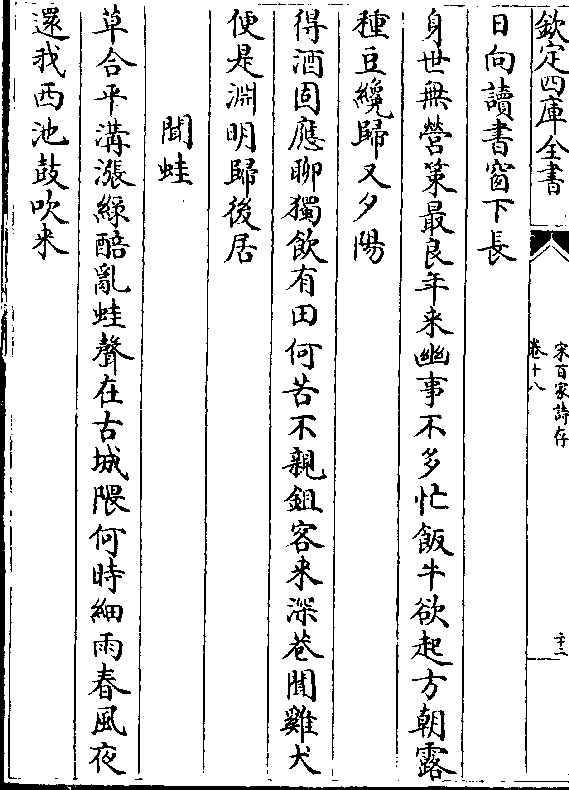 欽定四庫全書
宋百家詩存
卷十八
十二
日向讀書窗下長
身世無營策最良年来幽事不多忙飯牛欲起方朝露
種豆纔歸又夕陽
得酒固應聊獨飲有田何苦不親鉏客来深巷聞雞犬
便是淵明歸後居
聞蛙
草合平溝漲緑醅亂蛙聲在古城隈何時細雨春風夜
還我西池鼓吹来